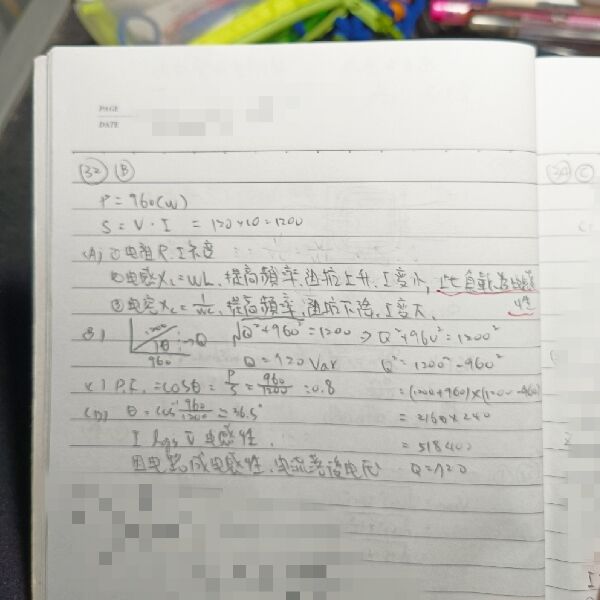 PAGE
DATE
32 B
P = 960(W)
S = V · I = 120×10 = 1200
(A) ① 電阻 R. I 不變
② 電感 XL = WL. 提高頻率. 阻抗上升. I 變小, 此負載為電感性
③ 電容 Xc = 1/wc. 提高頻率. 阻抗下降. I 變大.
B) 1200 θ Q 960 √Q²+960² = 1200 ⇒ Q²+960² = 1200²
Q = 720 Var Q² = 1200² - 960²
(C) P.F. = cosθ = P/S = 960/1200 = 0.8 = (1200+960)×(1200-960)
(D) θ = cos⁻¹ 960/1200 = 36.5° = 2160×240
I lags V 電感性. = 518400
因電路成電感性. 電流落後電壓 Q = 720
34 C